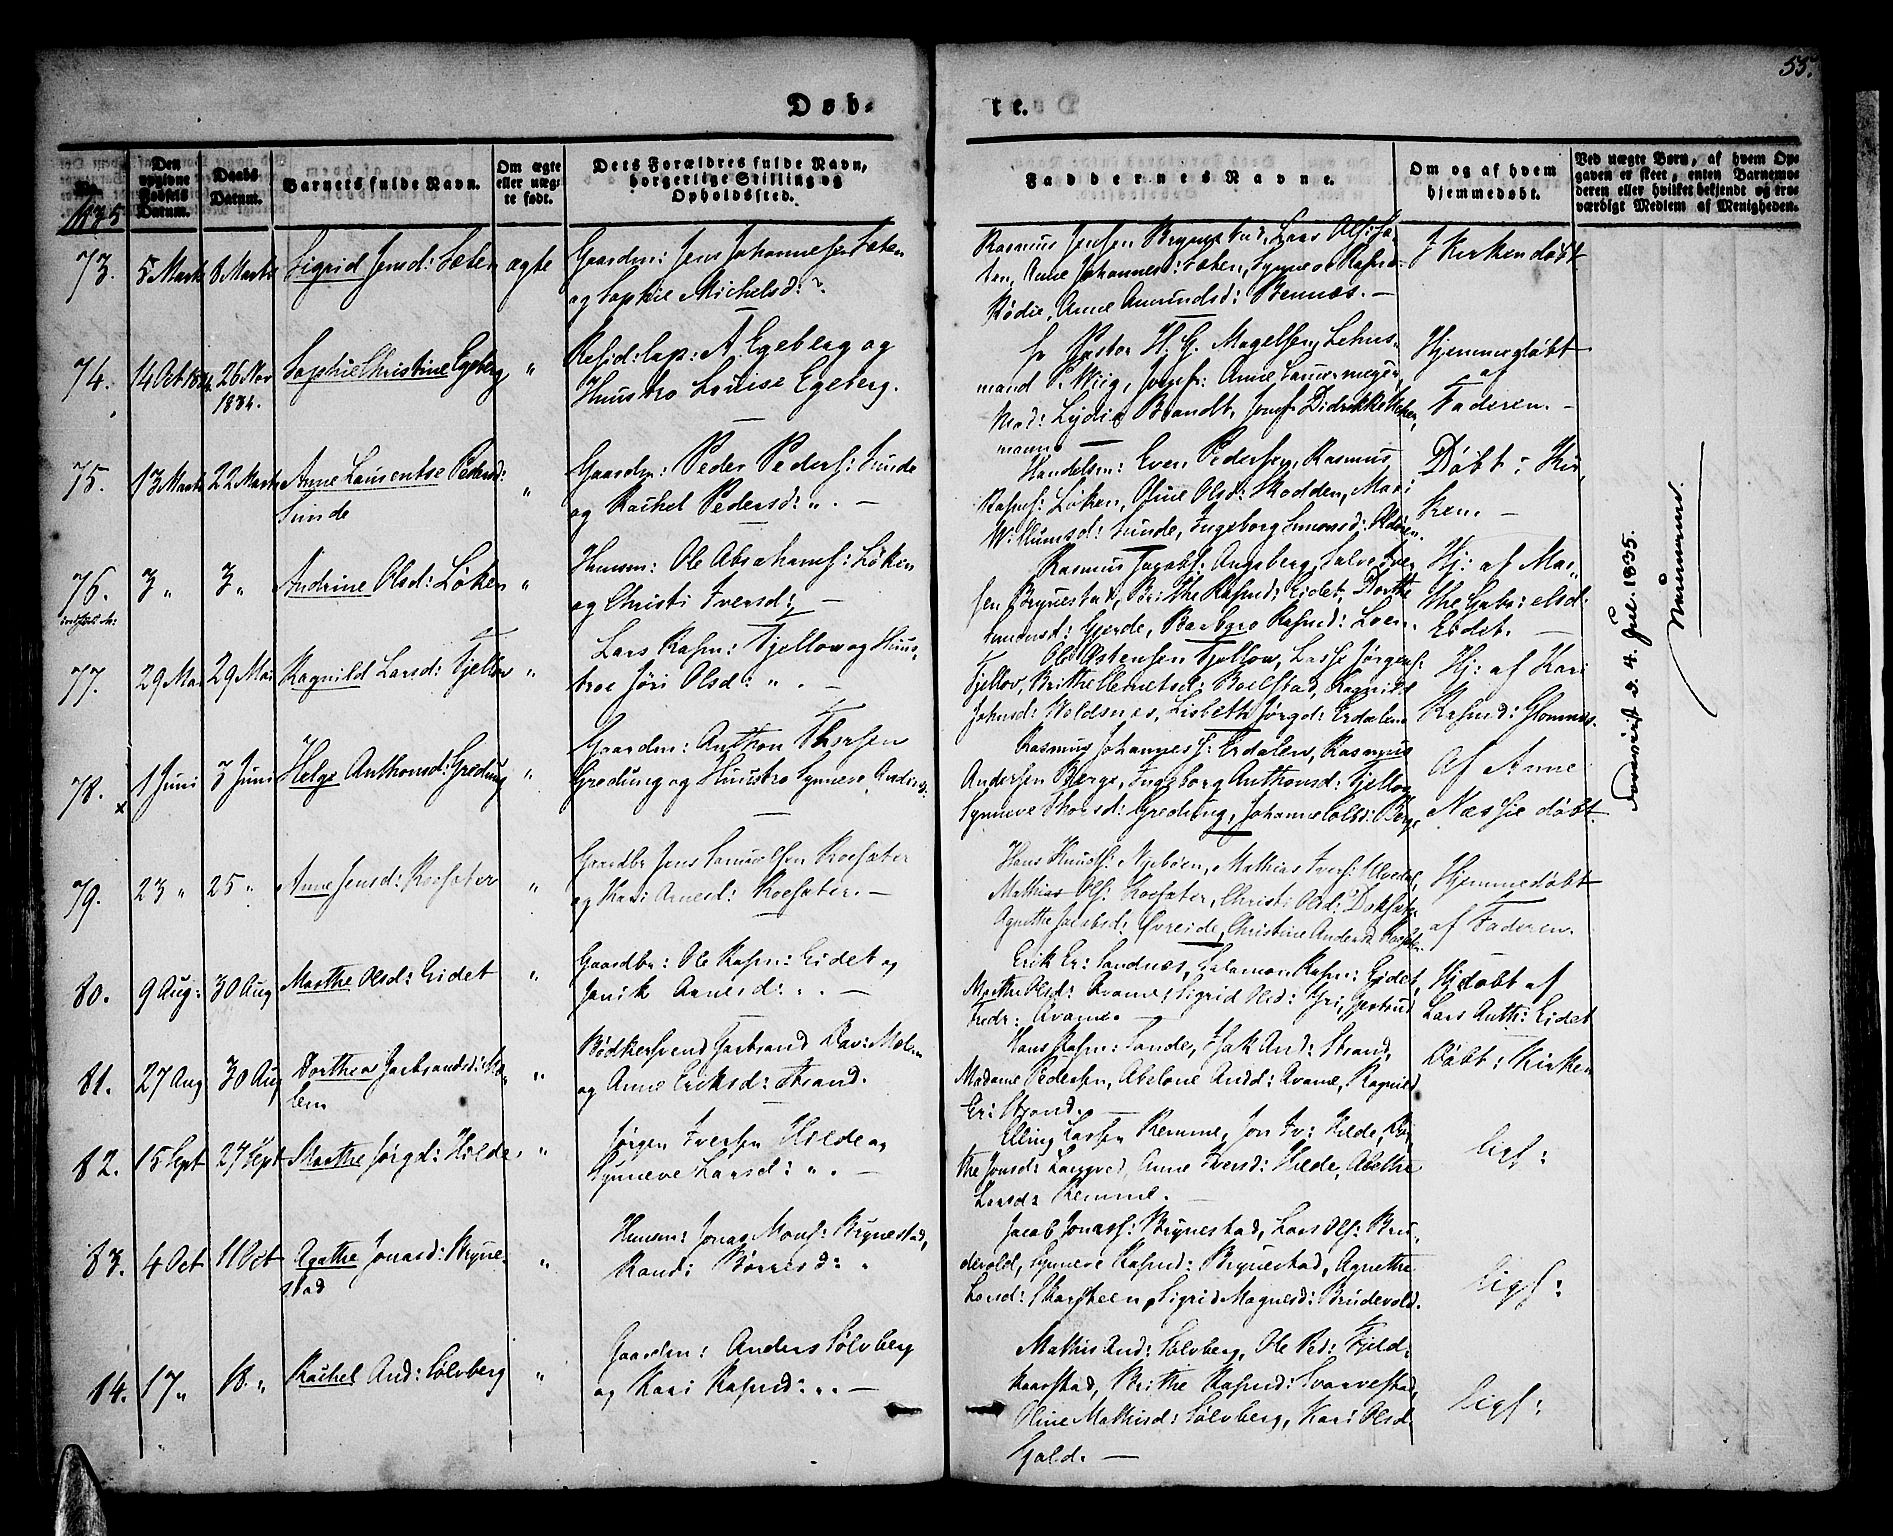 55.
Døb- te.
No. 1835
Den opgivne Fødsels Datum.
Daabs Datum.
Barnets fulde Navn.
Om ægte eller uægte født.
Dets Forældres fulde Navn, borgerlige Stilling og Opholdssted.
Faddernes Navne.
Om og af hvem hjemmedøbt.
Ved uægte Børn, af hvem Opgaven er skeet, enten Barnemoderen eller hvilket bekjendt og troværdigt Medlem af Menigheden.
73. 5 Marts 8 Marts Sigrid Jensd: Sæten ægte
Gaardm: Jens Johannesen Sæten
og Sophie Michelsd:
Rasmus Jensen Brynestad, Lars Ols: Sæ-
ten, Anne Johannesd: Sæten, Synneve Rasmd:
Rødie, Anne Amundsd: Bennæs. —
I Kirken døbt
74. 14 Oct 1834. 26 Nov 1834. Sophie Christine Egeberg "
Resid: Cap: A Egeberg og
Huustro Louise Egeberg.
Hr Pastor H. G. Magelsen, Lehns-
mand P. Wiig, Jomfr: Anne
Mad: Lydia Brandt, Jomf: Didrikke
mann
Hjemmedøbt
af
Faderen. —
75. 13 Marts 22 Marts Anne Laurentse Pedersd:
Sunde "
Gaardm: Peder Peders: Sunde
og Rachel Pedersd: " . —
Handelsm: Even Pedersen, Rasmus
Rasms: Løken, Oline Olsd: Skodden, Mari
Willumsd: Sunde, Ingeborg Simonsd: Oldøren.
Døbt i Kir
ken. —
76. 3 " 3 " Andrine Olsd: Løken "
Huusm: Ole Abrahams: Løken
og Christi Iversd: —
Rasmus Jacobs: Sølvester
sen Brynestad, Brithe Rasmd: Eidet, Dorthe
Simonsd: Gjerde, Barbgro Rasmd: Loen.
Hj: af Mar-
the Gabr: elsd:
Eidet. —
77. 29 Mai 29 Mai Ragnild Larsd: Fjellov "
Lars Rasm: Fjellov og Huus-
troe Jöri Olsd: " . —
Ole Østensen Fjellov, Lasse Jørgens:
Fjellov, Brithe Clemetsd: Bølstad, Ragnild
Johnsd: Woldsnæs, Lisbeth Jørgd: Erdalen
Hj: af Kari
Rasmd: Glomnes.
78. x 1 Juni 3 Juni Helge Anthonsd: Gredung "
Gaardm: Anthon Thorsen
Gredung og Huustro Synneve Andersd:
Rasmus Johannes: Erdalen, Rasmus
Andersen Berge, Ingeborg Anthonsd: Fjellov
Synneve Thorsd: Gredung, Johanne Olsd: Berge
Af Anne
Næssie døbt.
79. 23 " 25 " Anne Jensd: Kossæter "
Gaardbr Jens Samuelsen Kossæter
og Kari Arnesd: Kossæter. —
Hans Knuds: Nybøen, Mathias Ivers: Ulvedal,
Mathias Ols: Kossæter, Christi Olsd: Doksæt
Agnethe Jacobsd: Øvreide, Christine Andersd: Kossæter
Hjemmedøbt
af Faderen.
80. 9 Aug: 30 Aug Marthe Olsd: Eidet "
Gaardbr: Ole Rasm: Eidet og
Janik Arnesd: " . —
Erik Er: Sandnæs, Salamon Rasm: Eidet,
Marthe Olsd: Avame, Sigrid Olsd: Gjertrud
Fredr: Avame.
Hjdøbt af
Lars Anth: Eidet
81. 27 Aug 30 Aug Dorthea Garbrandsd: Mo-
len "
Bødkersvend Garbrand Dav: Molen
og Anne Eriksd: Strand.
Hans Rasm: Sande, Isak And: Strand,
Madame Pedersen, Abelone Andd: Avame, Ragnild
Er: Strand. —
Døbt i Kirken
82. 15 Sept 27 Sept Marthe Jørgd: Hilde "
Jørgen Iversen Hilde og
Synneve Larsd: " . —
Elling Larsen Remme, Jon Iv: Hilde, Bri
the Jonsd: Langved, Anne Iversd: Hilde, Abelthe
Larsd: Remme.
Ligs:
83. 4 Oct 11 Oct Agathe Jonasd: Bryne-
stad "
Huusm: Jonas Mons: Brynestad,
Randi Børresd: "
Jacob Jonass: Brynestad, Lars Ols: Bru-
devold, Synneve Rasmd: Brynestad, Agnethe
Larsd: Skarsteen, Sigrid Magnesd: Brudevold.
Ligs:
84. 17 " 18. " Rachel And: Sølvberg "
Gaardm: Anders Sølvberg
og Kari Rasmd: " . —
Mathis And: Sølvberg, Ole Ped: Fjeld-
kaarstad, Brithe Rasmd: Svarvestad,
Oline Mathisd: Sølvberg, Kari Olsd
Gald. —
Ligs:
d. 4. Jul. 1835.